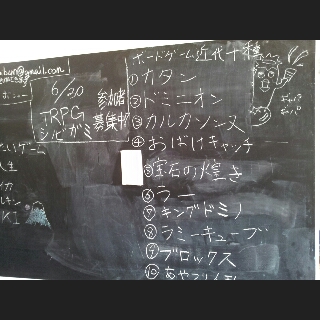 ボードゲーム近代十種
①カタン
②ドミニオン
③カルカソンヌ
④おばけキャッチ
⑤宝石の煌き
⑥ラー
⑦キングドミノ
⑧ラミーキューブ
⑨ブロックス
⑩あやつり人形
6/20
TRPG
シノビガミ
参加者
募集中
@gmail.com
ゲーム
人生
KI